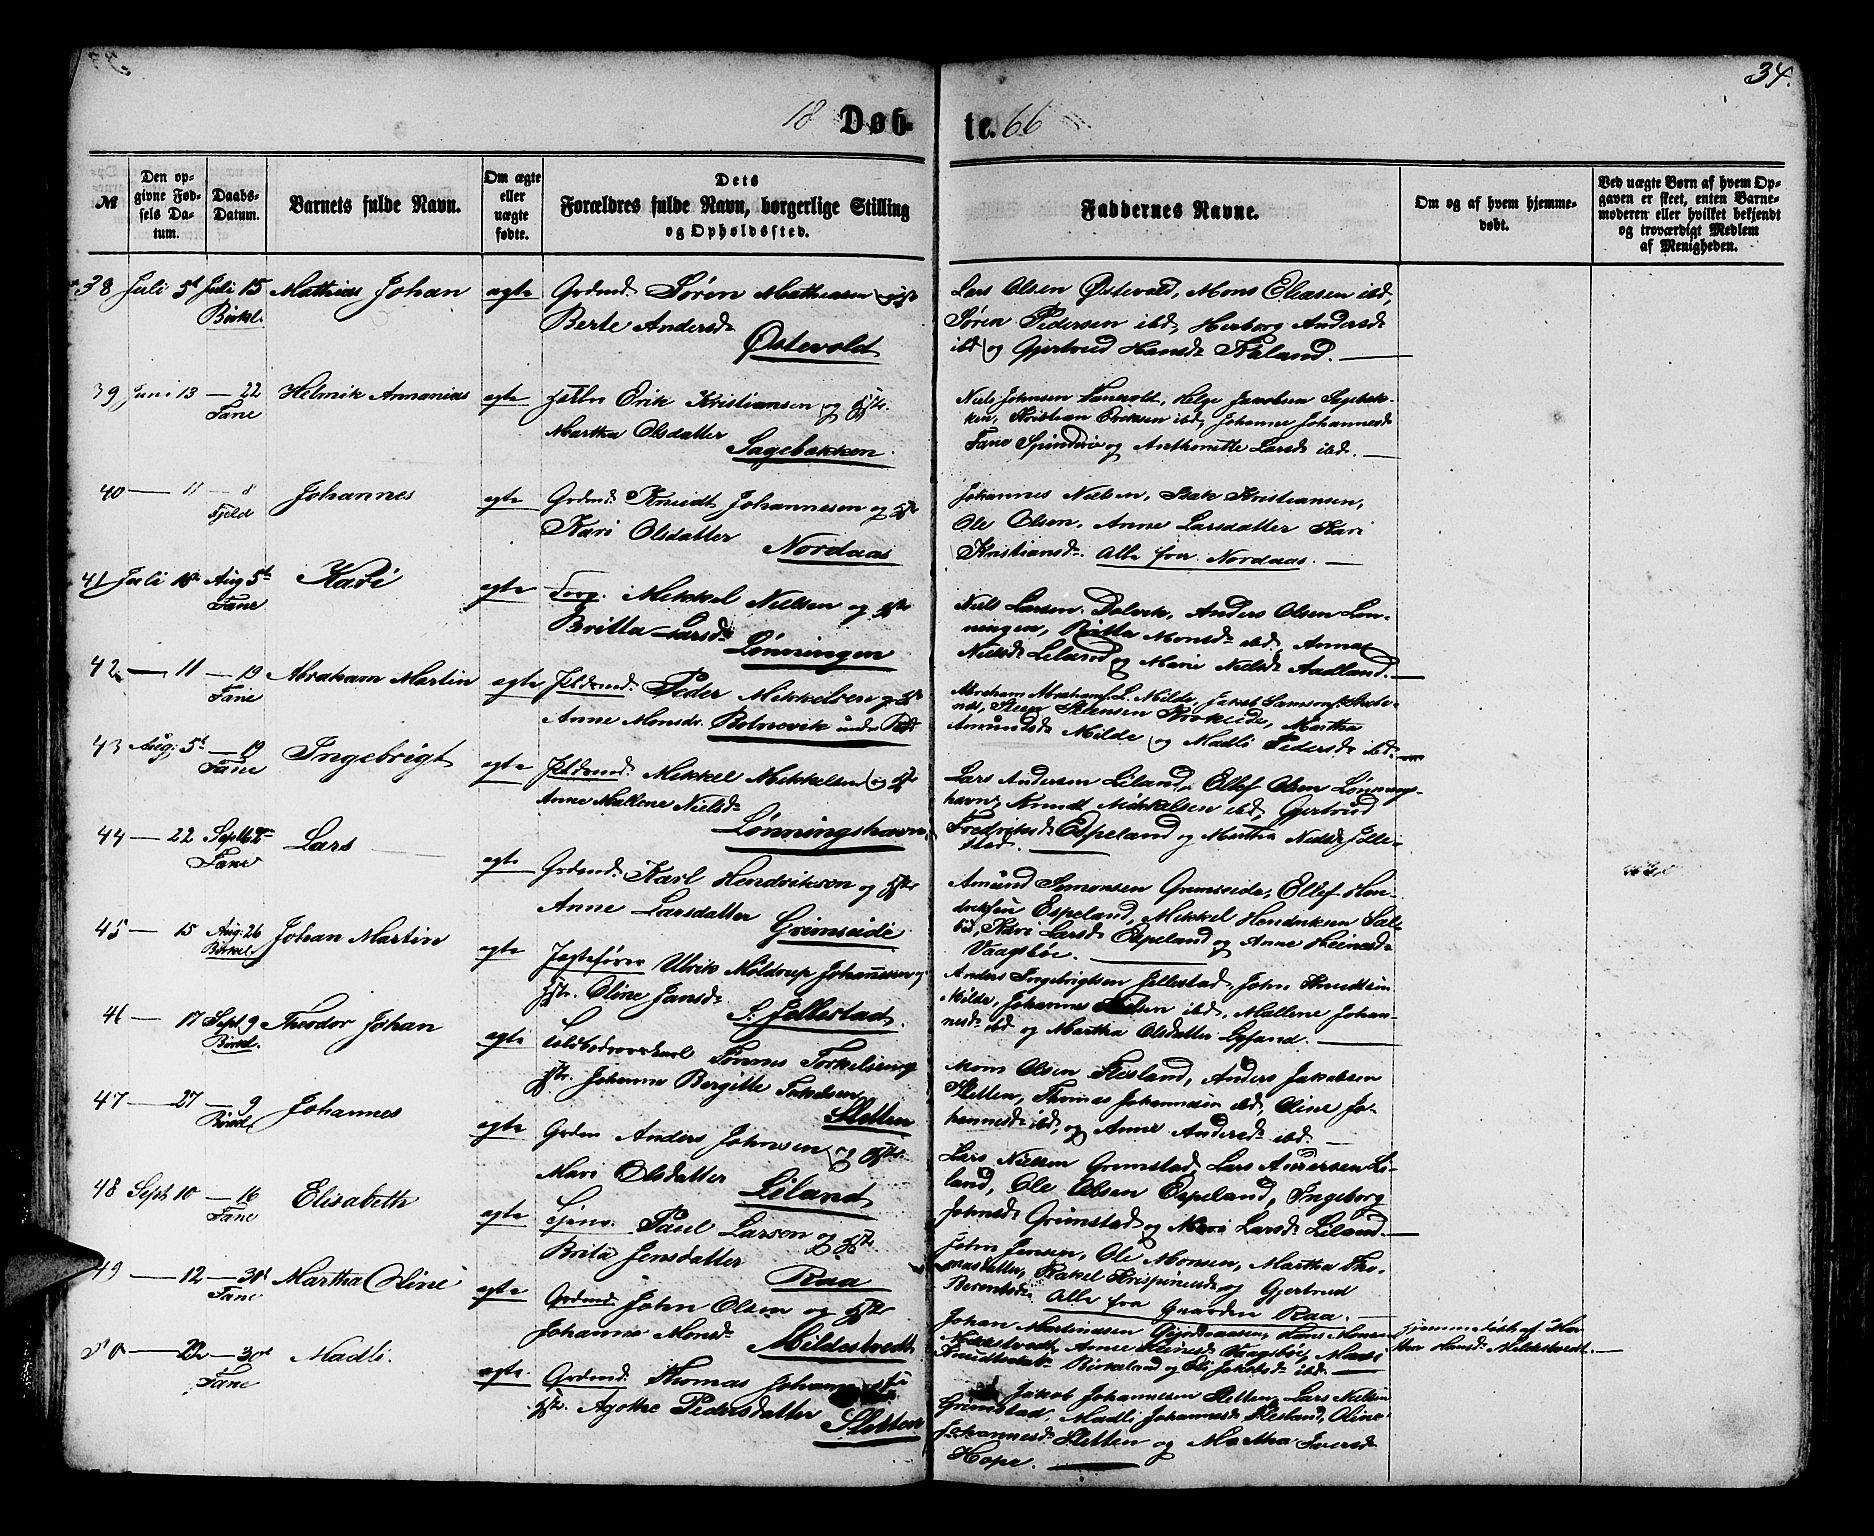 34.
18 Døb-
te. 66
№
Den op-
givne Fød-
sels Da-
tum.
Daabs-
Datum.
Barnets fulde Navn.
Om ægte
eller
uægte
fødte.
Dets
Forældres fulde Navn, borgerlige Stilling
og Opholdssted.
Faddernes Navne.
Om og af hvem hjemme-
døbt.
Ved uægte Børn af hvem Op-
gaven er skeet, enten Barne-
moderen eller hvilket bekjendt
og troværdigt Medlem
af Menigheden.
38 Juli 5t Juli 15 Mathias Johan ægte Grdmd. Søren Mathiasen og
Birkl.
Berte Andersd.
Østevold
Lars Olsen Østevold, Mons Eliasen ibd,
Søren Pedersen ibd, Herborg Andersd
ibd og Gjertrud Hansd.
39 Juni 13 — 22 Helmik Annanias ægte Erik Kristiansen og Hstr.
Fane
Martha Olsdatter
Sagebakken
Niels Johnsen Helge Jacobsen Sagebak-
ken, Kristian Eriksen ibd, Johanne Johannesd
Fane og Anthonette Larsd ibd.
40 — 11 — 8 Johannes ægte Grdmd. Knudt Johannesen og Hstr
Fjeld
Kari Olsdatter
Nordaas
Johannes Nielsen, Isak Kristiansen,
Ole Olsen, Anne Larsdatter Kari
Kristiansd. Alle fra Nordaas.
41 Juli 18 Aug 5t Kari ægte Forp. Mikkel Nielsen og Hstr
Fane
Britta Larsd
Lønningen
Niels Larsen Dalvik, Anders Olsen Løn-
ningen, Britta Monsd ibd, Anna
Nielsd Liland og Marie Nielsd Aadland.
42 — 11 — 19 Abraham Martin ægte Peder Mikkelsen og Hstr
Fane
Anne Monsdr. Botnevik under
Abraham Milde, Jakob Samson
Steen Krokeide, Martha
Amundsd Milde og Madli Pedersd ibd.
43 Aug: 5t — 19 Ingebrigt ægte Mikkel Mikkelsen og Hstr
Fane
Anne Mallene Nielsd.
Lønningshavn
Lars Andersen Liland, Ellef Olsen Lønnings-
havn, Knudt Mikkelsen ibd, Gjertrud
Fredriksd Espeland og Martha Nielsd Jelle-
stad.
44 — 22 Sept Lars ægte Grdmd. Karl Hendrikson og Hstr
Fane
Anne Larsdatter
Grimseide
Amund Simonsen Grimseide, Ellef Hen-
driksen Espeland, Mikkel Hendriksen
Kari Larsd Espeland og Anne Heinesd
Vaagsbøe.
45 — 15 Aug. 26 Johan Martin ægte Jagtefører Ulrik Møldrup Johannesen og
Birkel
Hstr. Oline Jansd.
S. Jellestad.
Anders Ingebrigtsen Jellestad, John Knudtsen
Milde, Johannes ibd, Mallene Johan-
nesd ibd og Martha Olsdatter
46 — 17 Sept 9 Theodor Johan ægte Tønnes Torkelsen og
Birkel.
Hstr. Johanne Bergitte
Sletten
Mons Olsen Flesland, Anders Jakobsen
Sletten, Thomas Johannesen ibd, Oline Jo-
hannesd ibd, og Anne Andersd ibd.
47 — 27 — 9 Johannes ægte Grdm Anders Johnsen og Hstr.
Mari Olsdatter
Liland
Lars Nielsen Grimstad, Lars Andersen Li-
land, Ole Olsen Espeland, Ingeborg
Johnsd Grimstad og Mari Larsd Liland.
48 Sept 10 — 16 Elisabeth ægte Tjen. Paul Larson og Hstr
Fane
Brita Jensdatter
Raa
John Jensen, Ole Monsen, Martha Tho-
masdatter, Rakel Krispinusd og Gjertrud
Berentsd. Alle fra Gaarden Raa.
49 — 12 — 30t Martha Oline ægte Grdmd John Olsen og Hstr
Fane
Johanne Monsd.
Mildestvedt
Johan Martinussen Hans Mons
Mildestvedt, Anne Heinesd Vaagsbøe,
Birkeland og Jakobsd ibd.
Hjemmedøbt af
Hansd. Mildestvedt.
50 — 22 — 30t Madli. ægte Grdmd. Thomas
Fane
Hstr. Agothe Pedersdatter Sletten
Jakob Johannesen Sletten, Lars Nielsen
Grimstad, Madli Johannesd Flesland, Oline
Johannesd. Sletten og Martha Iversd
Hope.